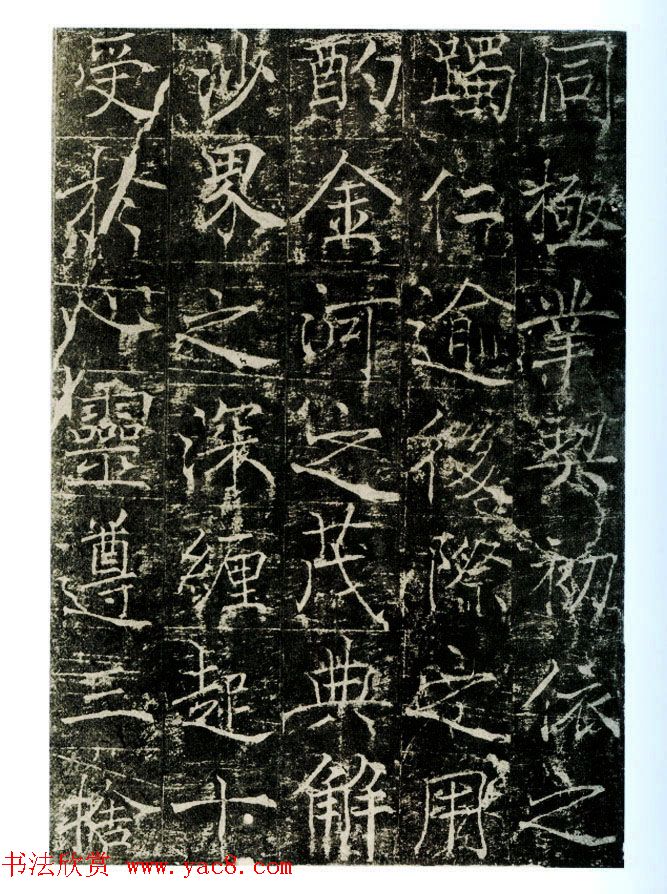 同極業契初依之
躅仁逾後際定用
酌金河之茂典解
沙界之深纏起十
受於心靈遵三捨
书法欣赏 www.yac8.com